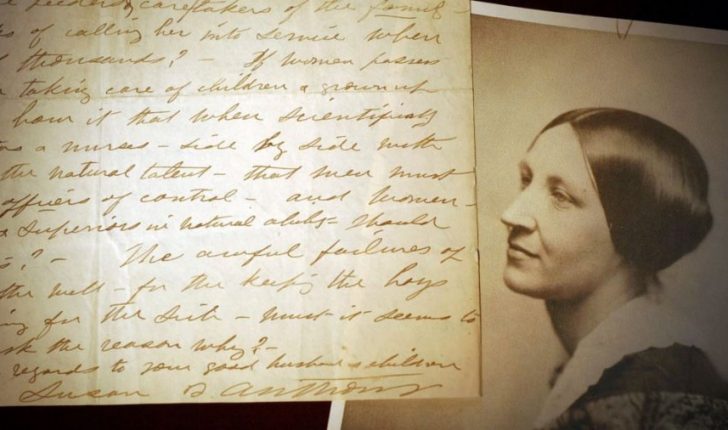 caretakers of the famil-
of calling her into service when
thousands? - If women possess
taking care of children & grown up
how is it that when scientifically
as a nurse - side by side with
the natural talent - that men must
officers of control - and women -
& Superiors in natural ability - should
? - The awful failures of
the well - for the keeping the boys
for the Sick - must it seems to
ask the reason why? -
regards to your good husband & children
Susan B. Anthony